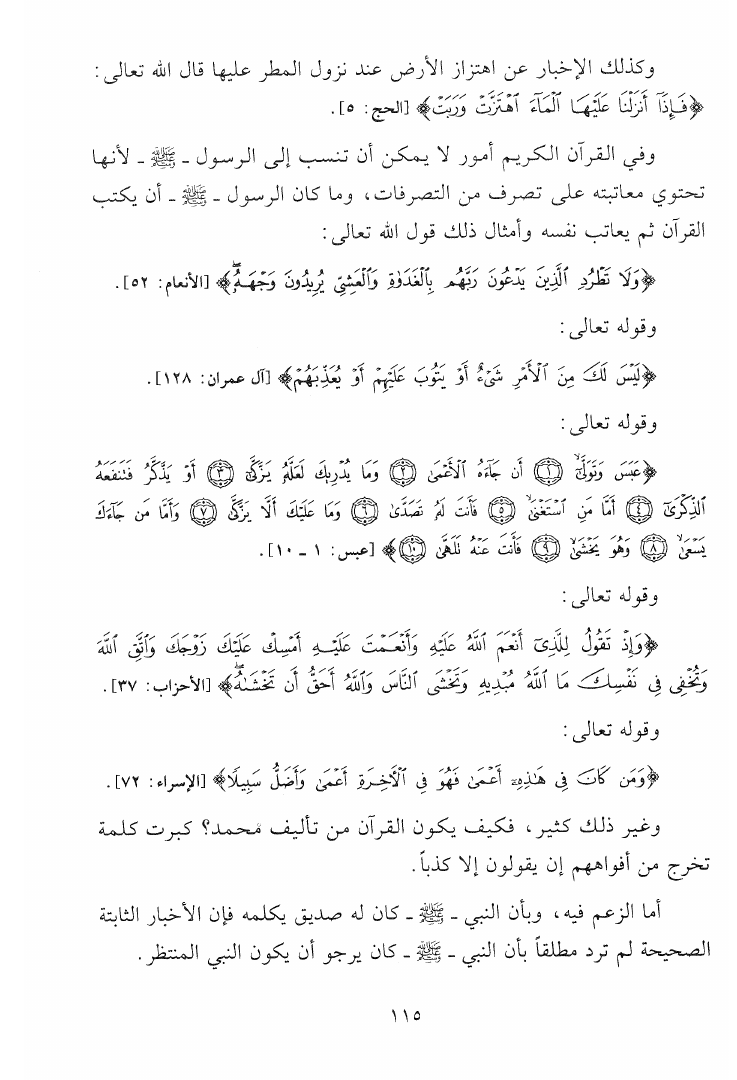 وكذلك الإخبار عن اهتزاز الأرض عند نزول المطر عليها قال الله تعالى:
﴿فَإِذَآ أَنزَلْنَا عَلَيْهَا ٱلْمَآءَ ٱهْتَزَّتْ وَرَبَتْ﴾ [الحج: ٥].
وفي القرآن الكريم أمور لا يمكن أن تنسب إلى الرسول ـ ﷺ ـ لأنها
تحتوي معاتبته على تصرف من التصرفات، وما كان الرسول ـ ﷺ ـ أن يكتب
القرآن ثم يعاتب نفسه وأمثال ذلك قول الله تعالى:
﴿وَلَا تَطْرُدِ ٱلَّذِينَ يَدْعُونَ رَبَّهُم بِٱلْغَدَوٰةِ وَٱلْعَشِىِّ يُرِيدُونَ وَجْهَهُۥۖ﴾ [الأنعام: ٥٢].
وقوله تعالى:
﴿لَيْسَ لَكَ مِنَ ٱلْأَمْرِ شَىْءٌ أَوْ يَتُوبَ عَلَيْهِمْ أَوْ يُعَذِّبَهُمْ﴾ [آل عمران: ١٢٨].
وقوله تعالى:
﴿عَبَسَ وَتَوَلَّىٰٓ ۝١ أَن جَآءَهُ ٱلْأَعْمَىٰ ۝٢ وَمَا يُدْرِيكَ لَعَلَّهُۥ يَزَّكَّىٰٓ ۝٣ أَوْ يَذَّكَّرُ فَتَنفَعَهُ
ٱلذِّكْرَىٰٓ ۝٤ أَمَّا مَنِ ٱسْتَغْنَىٰ ۝٥ فَأَنتَ لَهُۥ تَصَدَّىٰ ۝٦ وَمَا عَلَيْكَ أَلَّا يَزَّكَّىٰ ۝٧ وَأَمَّا مَن جَآءَكَ
يَسْعَىٰ ۝٨ وَهُوَ يَخْشَىٰ ۝٩ فَأَنتَ عَنْهُ تَلَهَّىٰ ۝١٠﴾ [عبس: ١ ـ ١٠].
وقوله تعالى:
﴿وَإِذْ تَقُولُ لِلَّذِىٓ أَنْعَمَ ٱللَّهُ عَلَيْهِ وَأَنْعَمْتَ عَلَيْهِ أَمْسِكْ عَلَيْكَ زَوْجَكَ وَٱتَّقِ ٱللَّهَ
وَتُخْفِى فِى نَفْسِكَ مَا ٱللَّهُ مُبْدِيهِ وَتَخْشَى ٱلنَّاسَ وَٱللَّهُ أَحَقُّ أَن تَخْشَىٰهُۖ﴾ [الأحزاب: ٣٧].
وقوله تعالى:
﴿وَمَن كَانَ فِى هَٰذِهِۦٓ أَعْمَىٰ فَهُوَ فِى ٱلْءَاخِرَةِ أَعْمَىٰ وَأَضَلُّ سَبِيلًا﴾ [الإسراء: ٧٢].
وغير ذلك كثير، فكيف يكون القرآن من تأليف محمد؟ كبرت كلمة
تخرج من أفواههم إن يقولون إلا كذباً.
أما الزعم فيه، وبأن النبي ـ ﷺ ـ كان له صديق يكلمه فإن الأخبار الثابتة
الصحيحة لم ترد مطلقاً بأن النبي ـ ﷺ ـ كان يرجو أن يكون النبي المنتظر.
١١٥